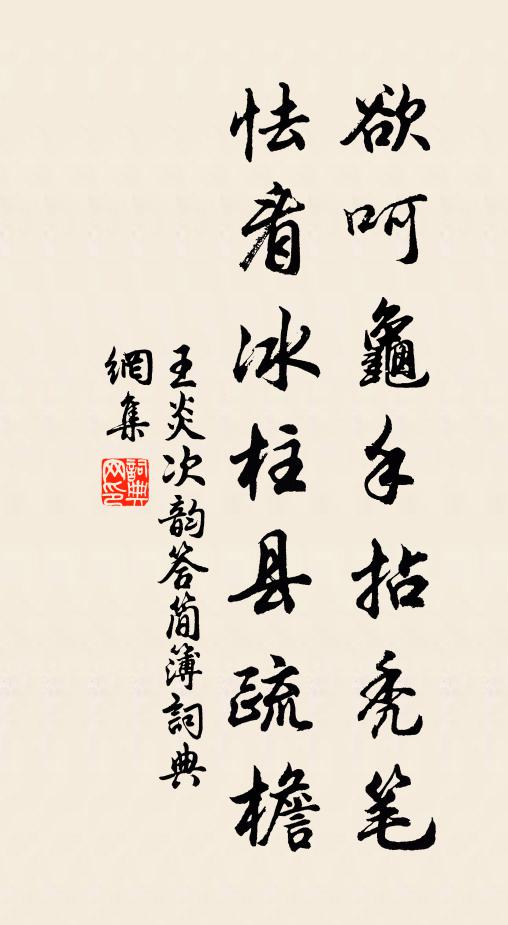 欲呵龜手拈秃笔
怯看冰柱县疏檐
王炎次韵答简簿詞典
網集
詞典
网印